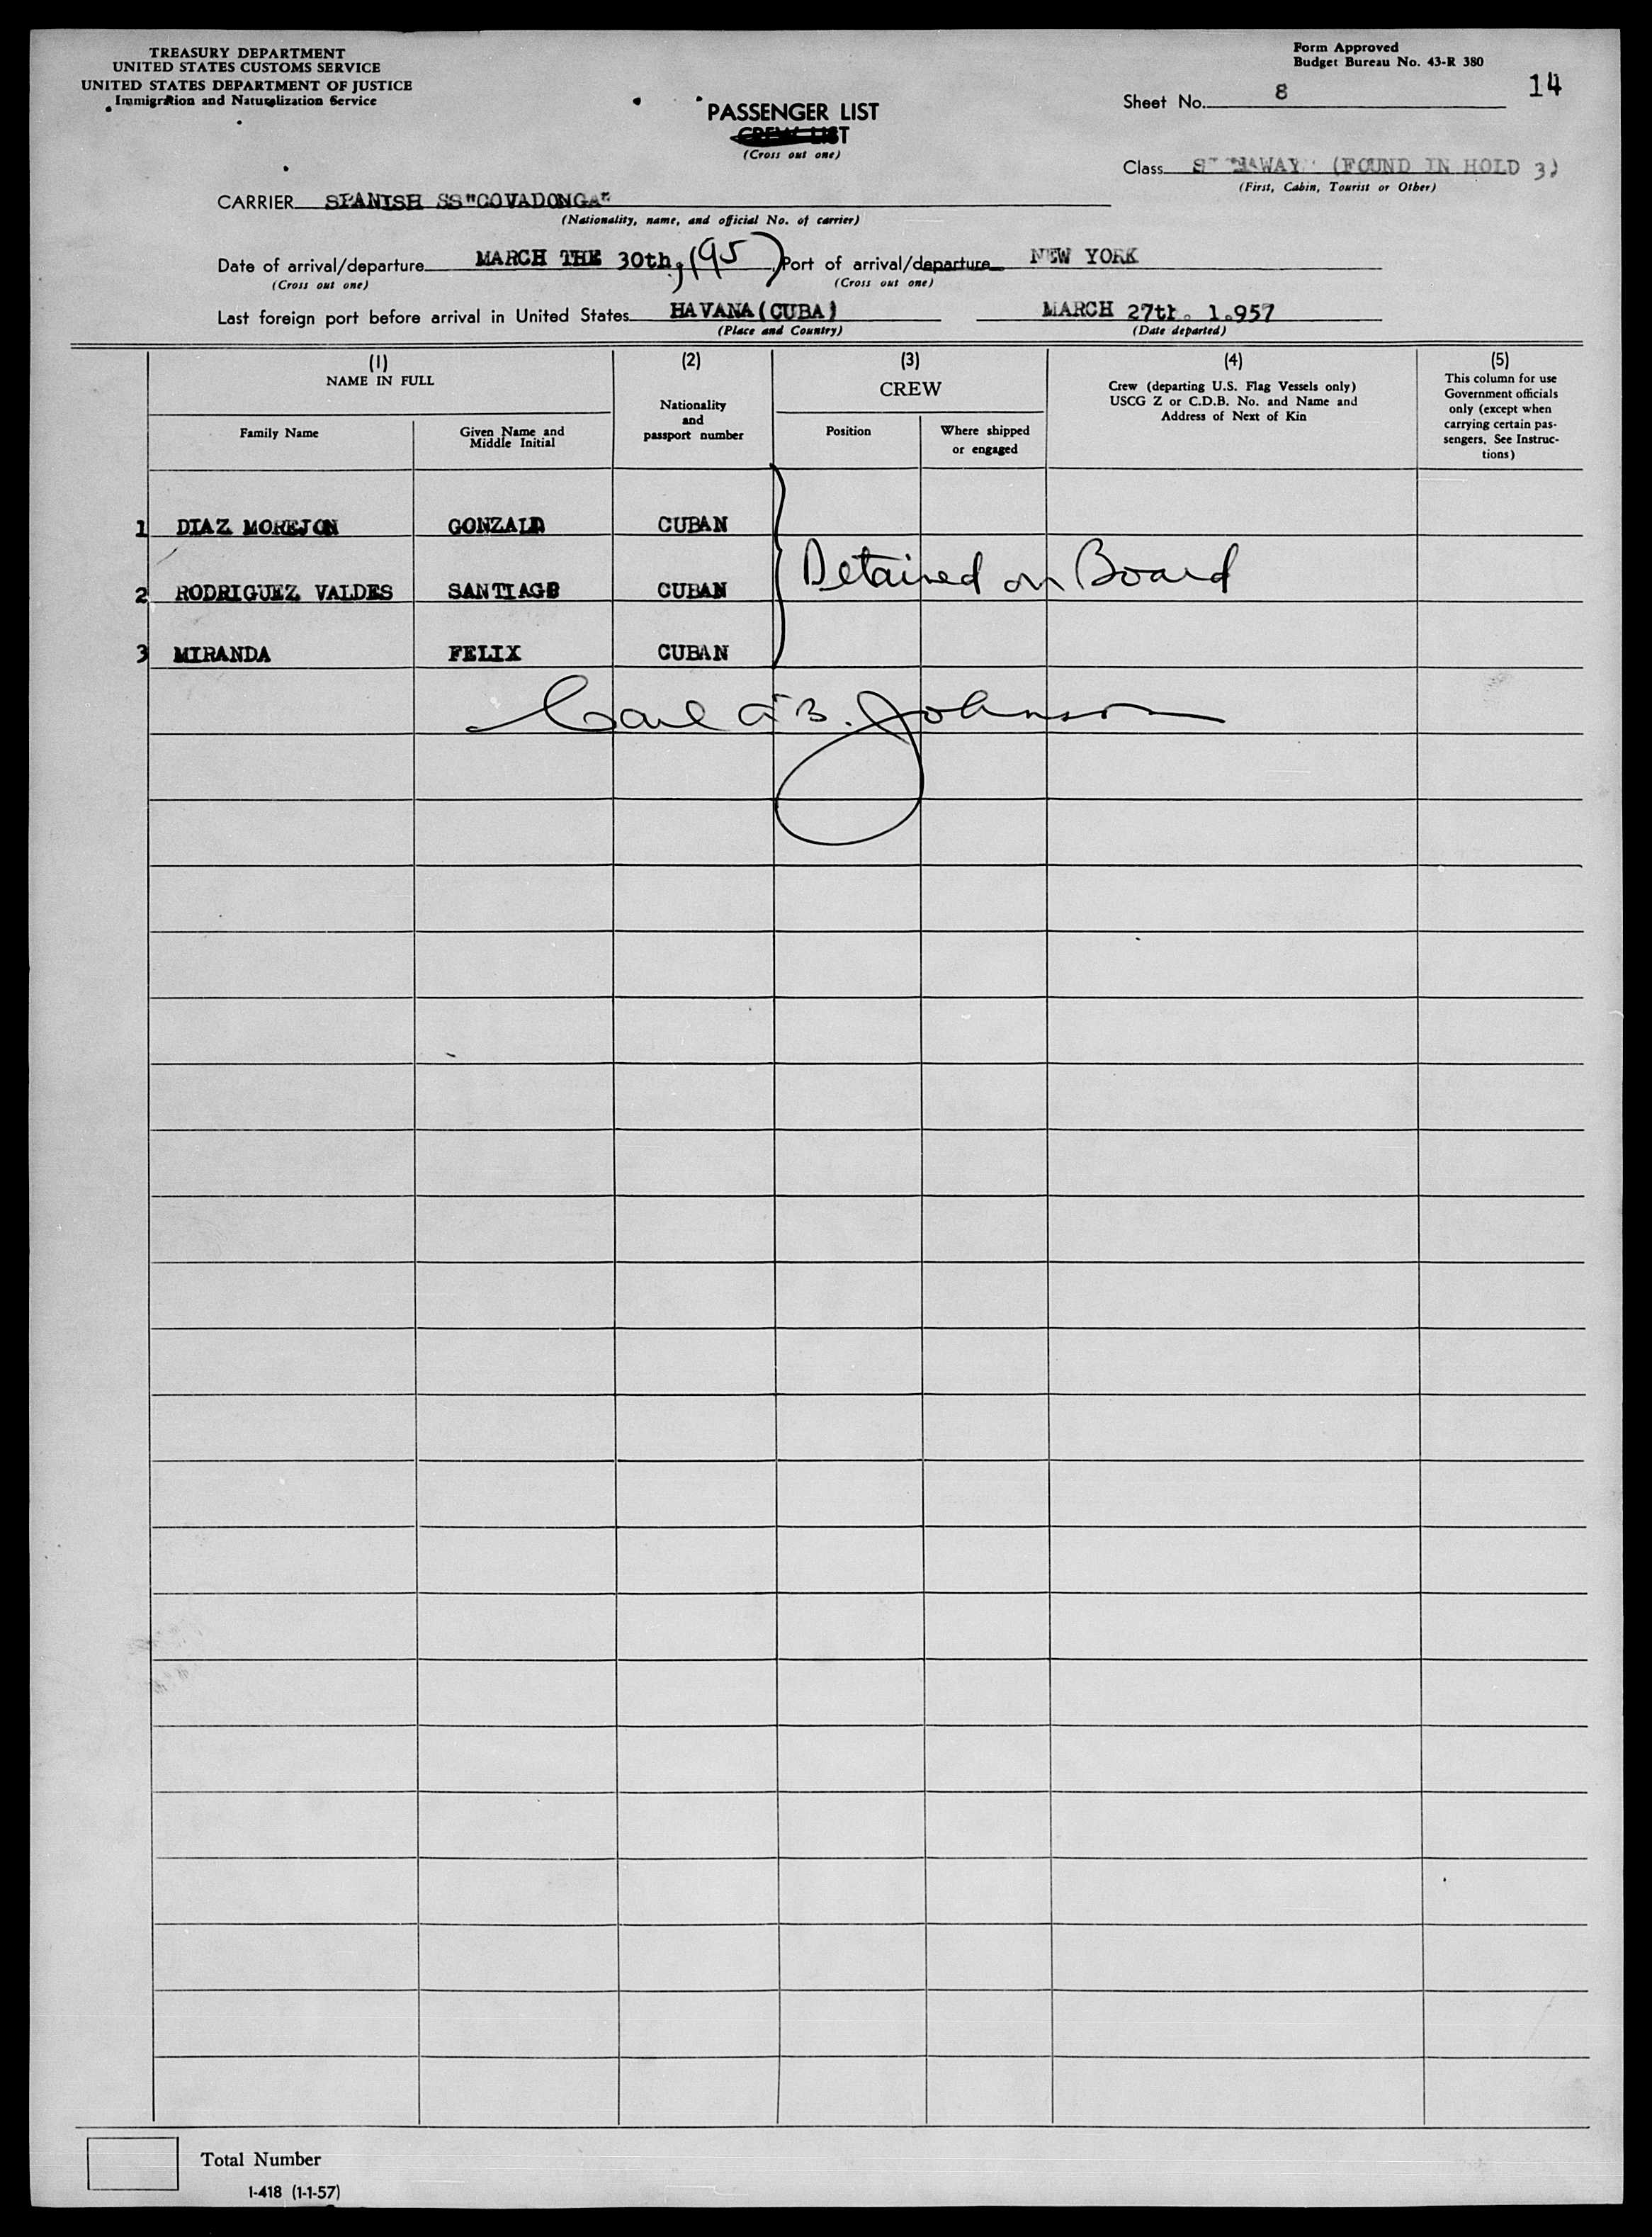 TREASURY DEPARTMENT
UNITED STATES CUSTOMS SERVICE
UNITED STATES DEPARTMENT OF JUSTICE
Immigration and Naturalization Service
Form Approved
Budget Bureau No. 43-R 380
14
Sheet No. 8
PASSENGER LIST
CREW LIST
(Cross out one)
Class (FOUND IN HOLD 3)
(First, Cabin, Tourist or Other)
CARRIER SPANISH SS"COVADONGA"
(Nationality, name, and official No. of carrier)
Date of arrival/departure MARCH THE 30th, Port of arrival/departure NEW YORK
(Cross out one) (Cross out one)
Last foreign port before arrival in United States HAVANA(CUBA) MARCH 27th. 1.957
(Place and Country) (Date departed)
(1) (2) (3) (4) (5)
NAME IN FULL
Family Name
Given Name and
Middle Initial
Nationality
and
passport number
CREW
Position
Where shipped
or engaged
Crew (departing U.S. Flag Vessels only)
USCG Z or C.D.B. No. and Name and
Address of Next of Kin
This column for use
Government officials
only (except when
carrying certain pas-
sengers. See Instruc-
tions)
1 DIAZ MOREJON GONZALO CUBAN
Detained on Board
2 RODRIGUEZ VALDES SANTIAGO CUBAN
3 MIRANDA FELIX CUBAN
Carl B. Johnson
Total Number
I-418 (1-1-57)